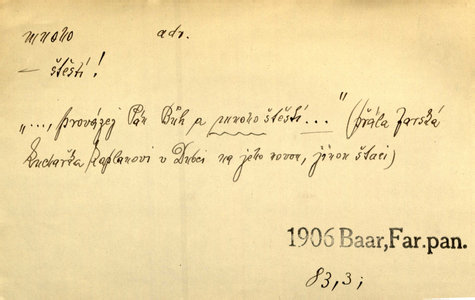 mnoho adv.
— štěstí!
„..., provázej Pán Bůh a mnoho štěstí..." (přála farská
kuchařka kaplanovi v Dubci na jeho novou, jinou štaci)
1906 Baar, Far. pan.
83, 3;